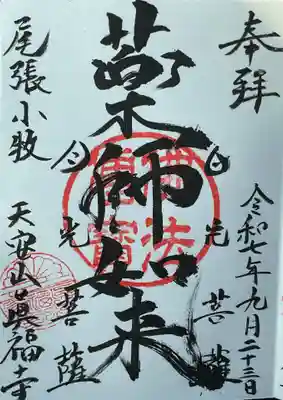 奉拝
令和七年九月二十三日
日光菩薩
薬師如来
月光菩薩
尾張小牧
天安山真福寺
佛法僧寳